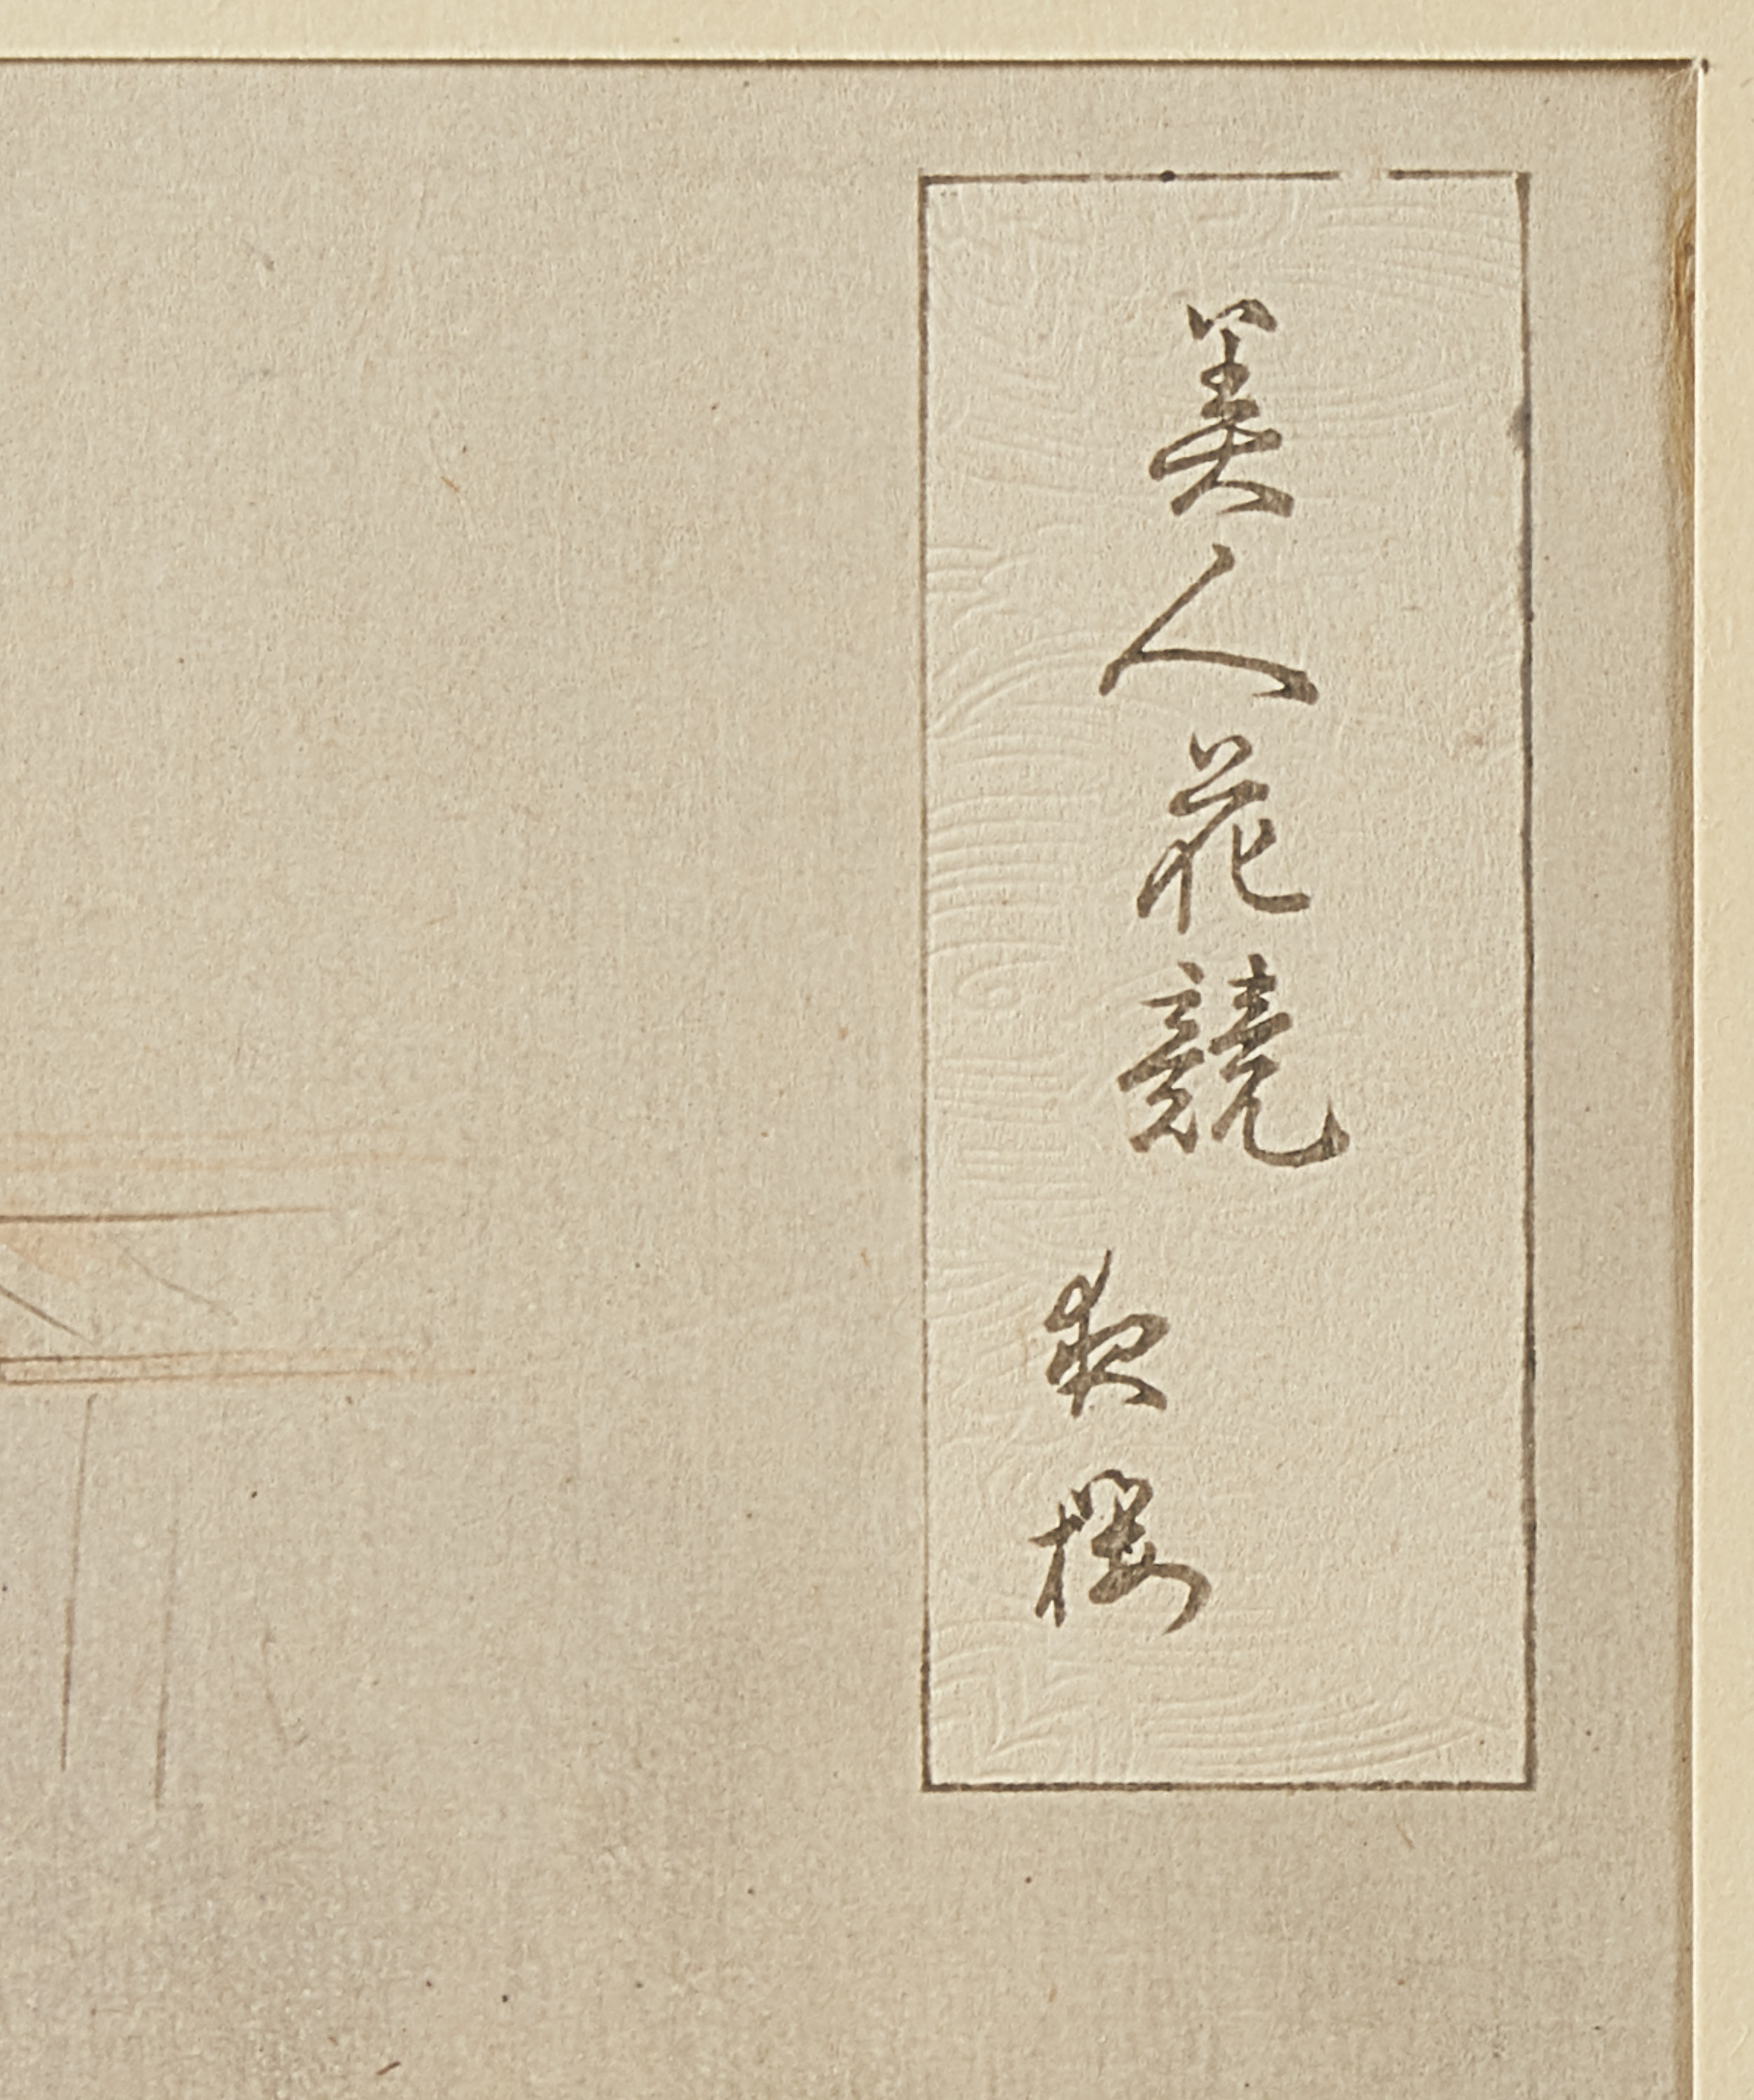 美人花競
夜櫻